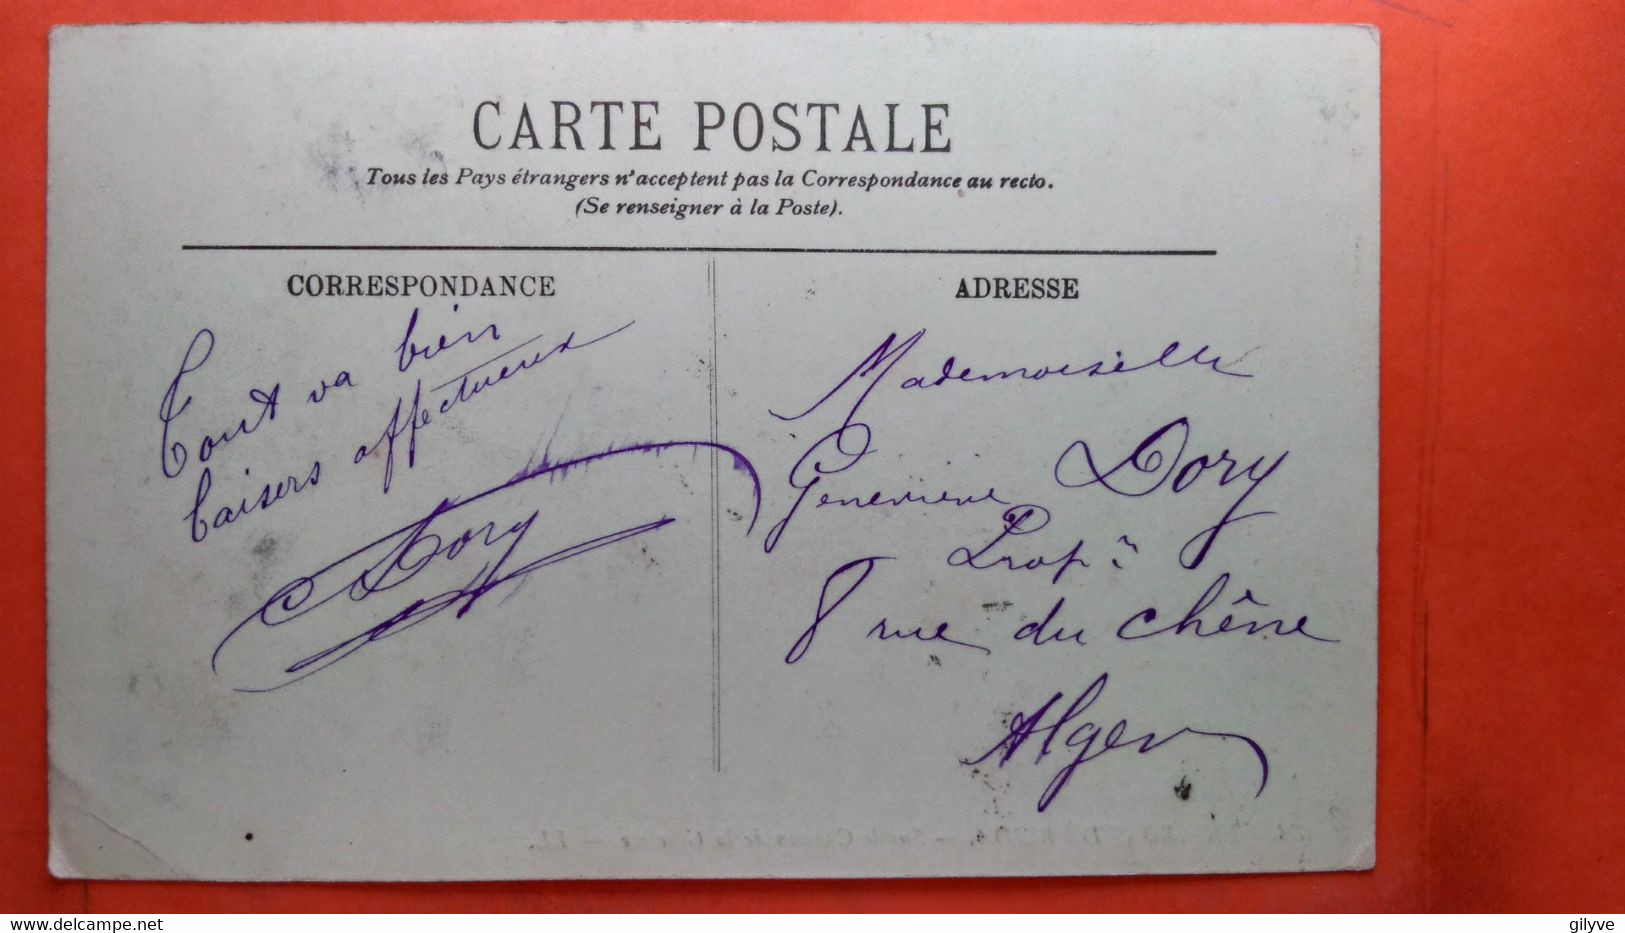 CARTE POSTALE
Tous les Pays étrangers n'acceptent pas la Correspondance au recto.
(Se renseigner à la Poste).
CORRESPONDANCE
Tout va bien
baisers affectueux
Dory
ADRESSE
Mademoiselle
Geneviève Dory
Prop.re
8 rue du Chêne
Alger
gilyve